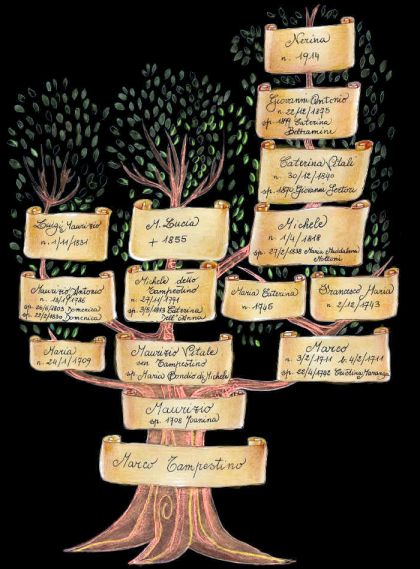 Nerina
n. 1914
Giovanni Antonio
n. 22/12/1875
sp. 1899 Caterina
Beltramini
Caterina Vitali
n. 30/12/1840
sp. 1870 Giovanni Sertori
Luigi Maurizio
n. 1/11/1831
M. Lucia
+ 1855
Michele
n. 1/4/1818
sp. 27/2/1838 Maria Maddalena
Maurizio Antonio
n. 1786
Domenica
Domenica
Michele detto
Tampestino
n. 29/11/1791
sp. 3/5/1813 Caterina
Dell'Anna
Maria Caterina
n. 1745
Francesco Maria
n. 2/12/1743
Maria
n. 24/1/1709
Maurizio Vitale
sen Tampestino
sp. Maria Bondio di Michele
Marco
n. 3/2/1711 b. 4/2/1711
sp. 22/4/1742 Carolina
Maurizio
sp. 1708 Joanina
Marco Tampestino